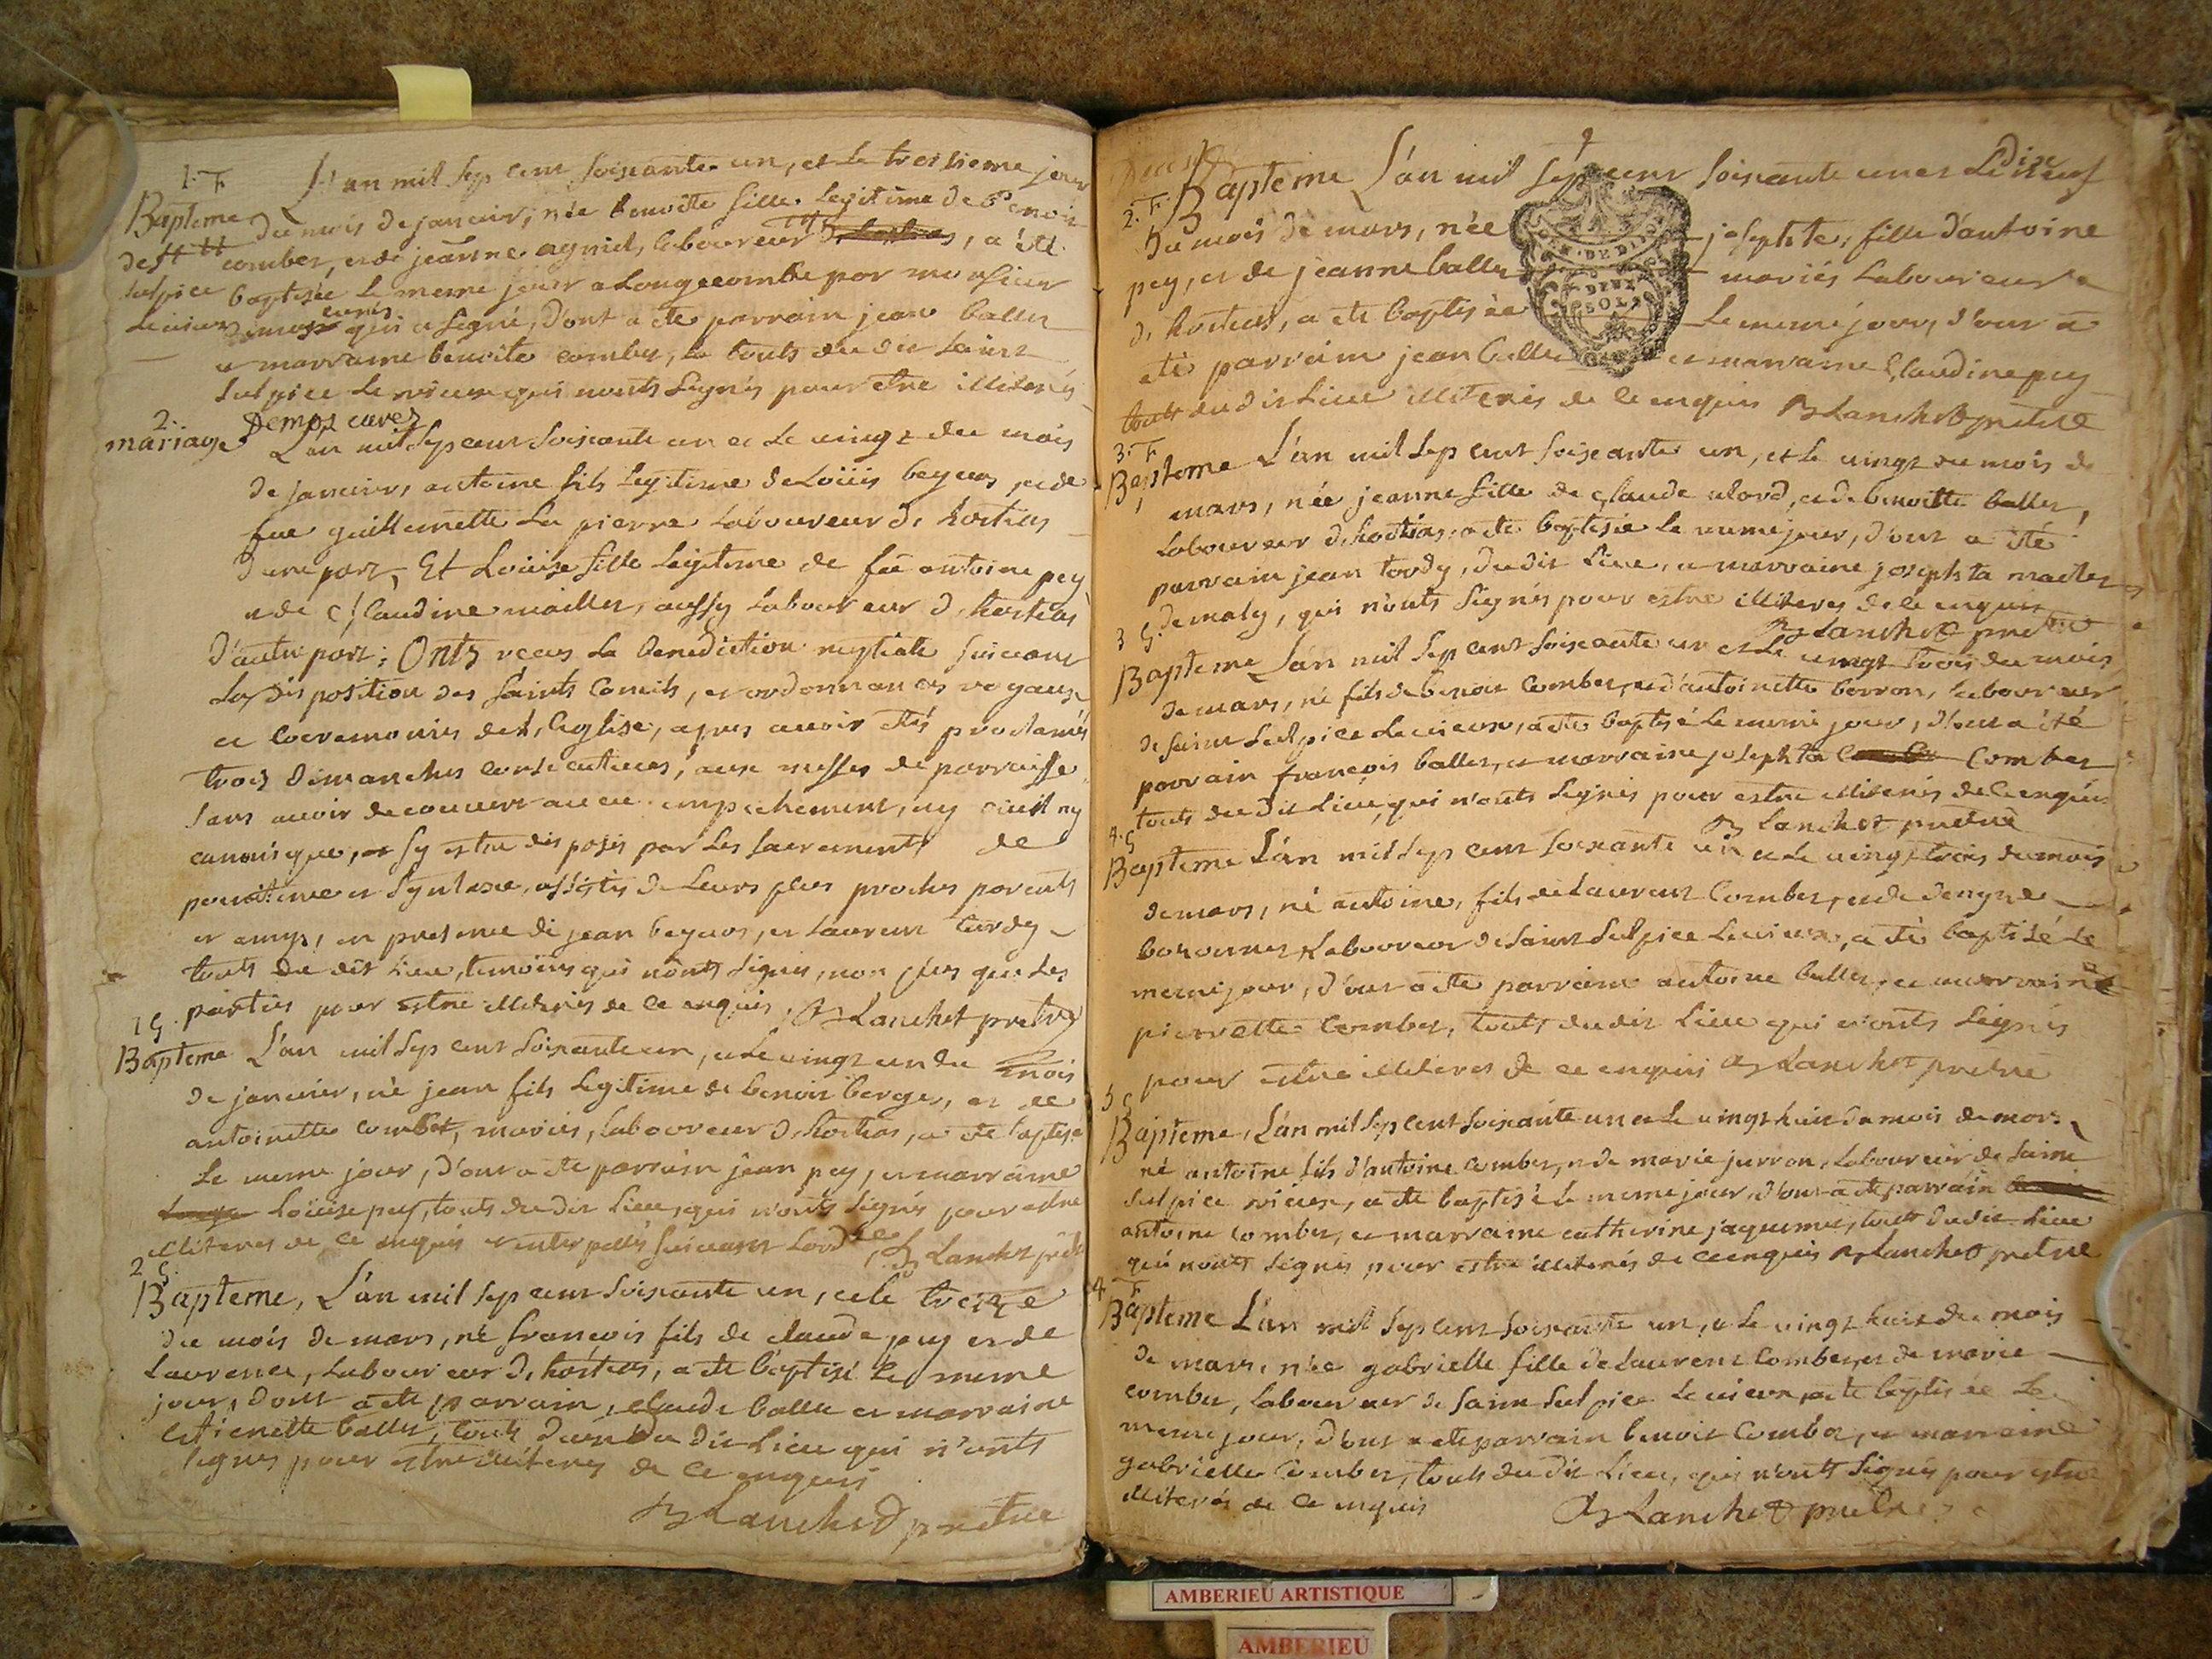 1. F
L'an mil sep cent soixante un, et le treisieme jour
Bapteme du mois de janvier, née benoite fille legitime de Benoit
de st combet, et de jeanne agniel, laboureur, a été
sulpice baptisée le meme jour a Longecombe par monsieur
le vieux demos curés qui a signé, d'ont a été parrain jean ballet
et marraine benoite combet, touts du dit saint
sulpice le vieux qui n'onts signés pour etre illiterés
Demos curez
2.
mariage L'an mil sep cent soixante un et le vingt du mois
de janvier, antoine fils legitime de Loüis et de
feue guillemette La pierre laboureur d'hostias
d'une part, Et Loüise fille legitime de feu antoine pey
et de Claudine maillet, aussy laboureur d'hostias
d'autre part; Onts recus la benediction nuptiale suivant
la disposition des saints Concils, et ordonnances royaux
et ceremonies de l'eglise, apres avoir étés proclamés
trois dimanches consecutives, aux messes de parroisse
sans avoir decouvert aucu empechement, ny civil ny
canonique, sy estre disposés par les sacrements de
penitence et assistés de leurs plus proches parents
et amys, en presence de jean et Laurent
touts du dit Lieu, temoins qui n'onts signés, non plus que les
parties pour estre illiterés de ce enquis. Blanchet pretre
1 G.
Bapteme L'an mil sep cent soixante un, et le vingt un du mois
de janvier, né jean fils legitime de benoit berger, et de
antoinette combet, mariés, laboureur d'hostias, a été baptisé
le meme jour, d'ont a été parrain jean pey, et marraine
Loüise pey, touts du dit Lieu, qui n'onts signés pour estre
illiteres de ce enquis et interpellés suivant l'ord Blanchet
2 G.
Bapteme, L'an mil sep cent soixante un, et le treize
du mois de mars, né françois fils de claude pey et de
Laurence, Laboureur d'hostias, a été baptisé le meme
jour, dont a été parrain, claude ballet et marraine
etienette ballet, touts du dit Lieu qui n'onts
signes pour estre illiteres de ce enquis
Blanchet pretre
2. F
Bapteme L'an mil sep cent soixante un et le dix neuf
DEUX
SOLS
du mois de mars, née josephte, fille d'antoine
pey, et de jeanne ballet mariés laboureur
d'hostias, a été baptisée le meme jour, d'ont a
eté parrain jean ballet et marraine Claudine pey
touts du dit Lieu illiterés de ce enquis Blanchet pretre
3. F
Bapteme L'an mil sep cent soixante un, et le vingt du mois de
mars, née jeanne fille de Claude et de benoitte ballet,
Laboureur d'hostias, a été baptisée le meme jour, d'ont a été
parrain jean du dit Lieu, et marraine josephta
qui n'onts signés pour estre illiteres de ce enquis
Blanchet pretre
3 G.
Bapteme L'an mil sep cent soixante un et le vingt trois du mois
de mars, né fils de benoit Combet, et d'antoinette laboureur
de saint sulpice le vieux, a été baptisé le meme jour, d'ont a été
parrain françois ballet, et marraine josephta Combet
touts du dit Lieu, qui n'onts signés pour estre illiterés de ce enquis
Blanchet pretre
4. G
Bapteme L'an mil sep cent soixante un et le vingt trois du mois
de mars, né antoine, fils de Laurent Combet, et de
Laboureur de saint sulpice le vieux, a été baptisé le
meme jour, d'ont a été parrain antoine ballet, et marraine
pierrette Combet, touts du dit Lieu qui n'onts signés
pour estre illiteres de ce enquis Blanchet pretre
5 G
Bapteme, L'an mil sep cent soixante un et le vingt huit du mois de mars
né antoine fils d'antoine Combet, et de marie laboureur de saint
sulpice vieux, a été baptisé le meme jour, d'ont a été parrain
antoine Combet, et marraine catherine touts du dit Lieu
qui n'onts signés pour estre illiterés de ce enquis Blanchet pretre
4. F
Bapteme L'an mil sep cent soixante un, et le vingt huit du mois
de mars, née gabrielle fille de Laurent Combet, et de marie
combet, laboureur de saint sulpice le vieux, a été baptisée le
meme jour, d'ont a été parrain benoit Combet, et marraine
gabrielle Combet, touts du dit Lieu, qui n'onts signés pour estre
illiterés de ce enquis Blanchet pretre
AMBERIEU ARTISTIQUE
AMBERIEU